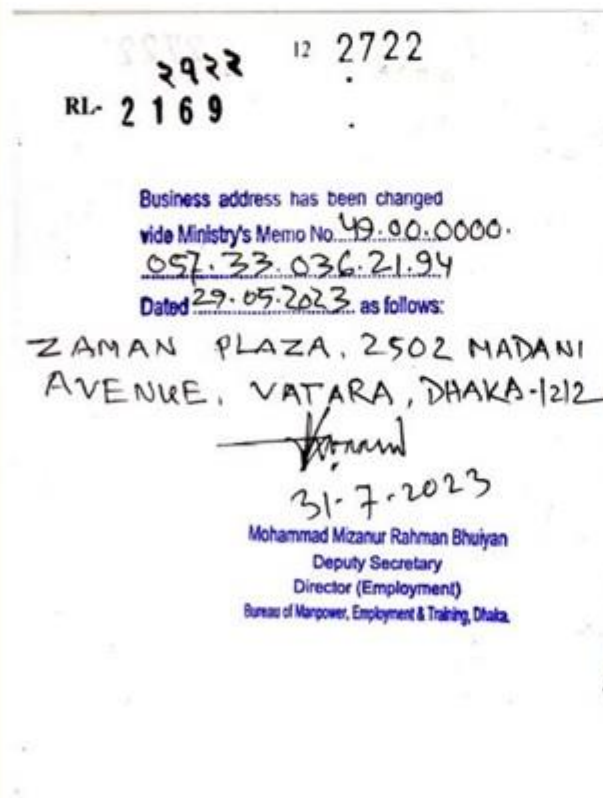 12 2722
২৭২২
RL- 2169
Business address has been changed
vide Ministry's Memo No. 49.00.0000.
057.33.036.21.94
Dated 29.05.2023 as follows:
ZAMAN PLAZA, 2502 MADANI
AVENUE, VATARA, DHAKA-1212
31-7-2023
Mohammad Mizanur Rahman Bhuiyan
Deputy Secretary
Director (Employment)
Bureau of Manpower, Employment & Training, Dhaka.